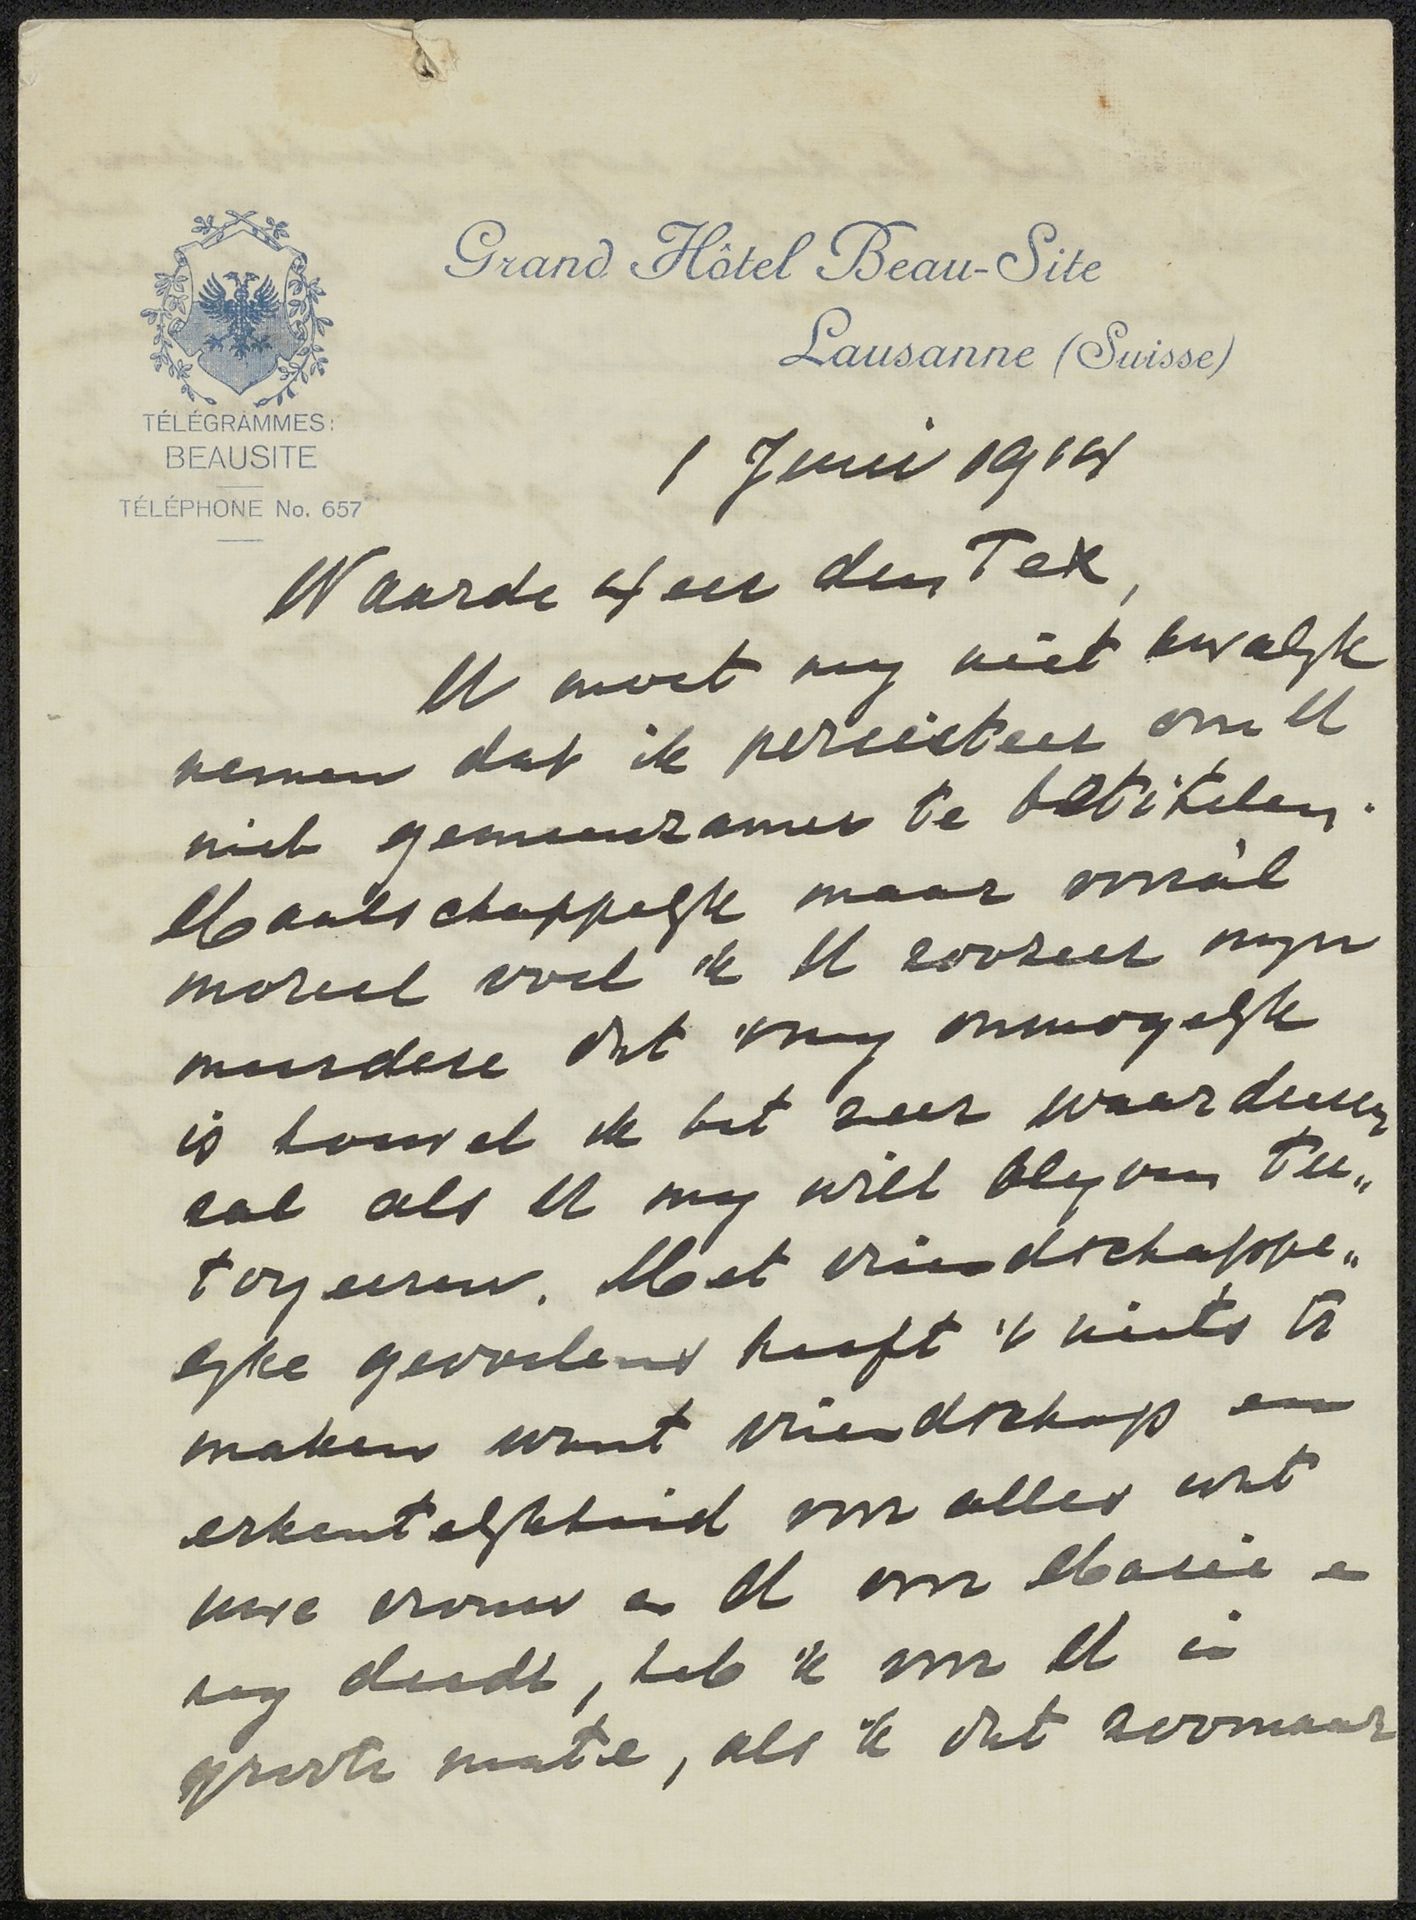 Grand Hôtel Beau-Site
Lausanne (Suisse)
TÉLÉGRAMMES:
BEAUSITE
TÉLÉPHONE No. 657
1 Juni 1914
Waarde Heer den Tex,
U moet my niet kwalyk
nemen dat ik persisteer om U
niet gemeenzamer te betitelen.
Maatschappelyk maar vooràl
moreel voel ik U zoozeer myn
meerdere dat 't my onmogelyk
is hoewel ik het zeer waardeeren
zal als U my wilt blyven tu„
toyeeren. Met vriendschappe„
lyke gevoelens heeft 't niets te
maken want vriendschap en
erkentelykheid voor alles wat
uwe vrouw en U voor Marie en
my deedt, heb ik voor U in
groote mate, als ik dat zoomaar